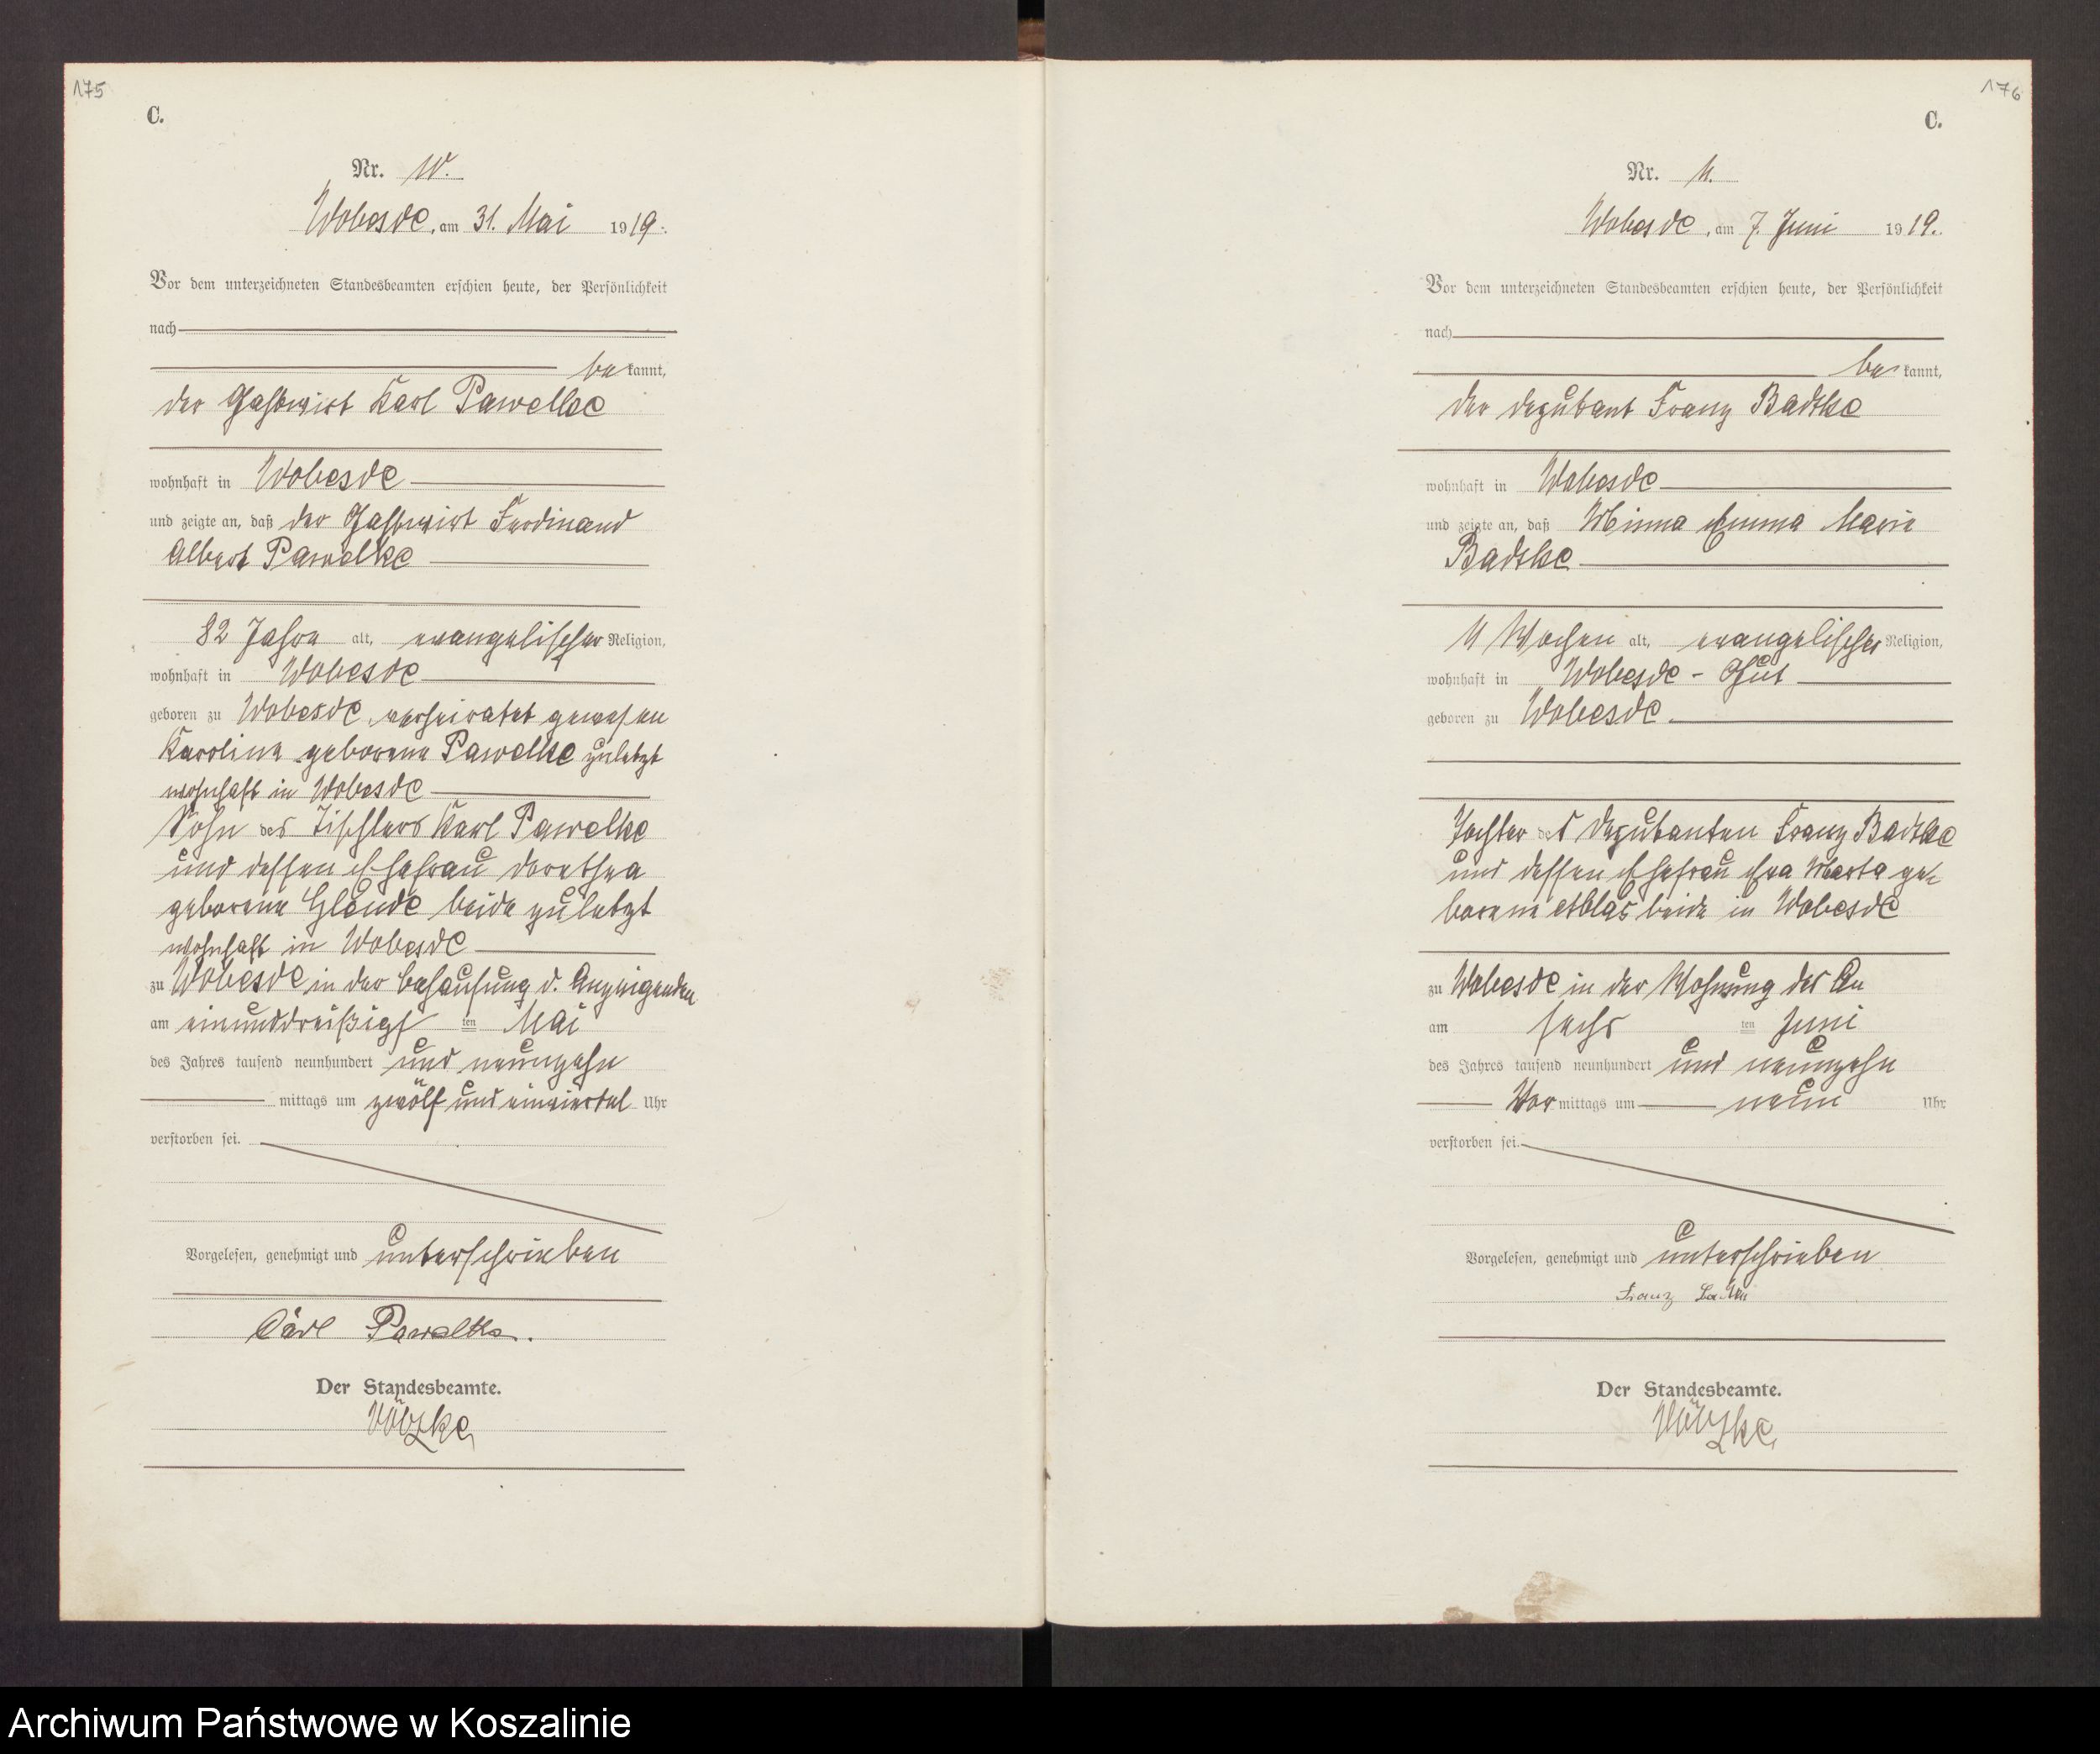 175
C.
Nr. 10.
Wobesde, am 31. Mai 1919.
Vor dem unterzeichneten Standesbeamten erschien heute, der Persönlichkeit
nach
be kannt,
der Gastwirt Karl Pawelke
wohnhaft in Wobesde
und zeigte an, daß der Gastwirt Ferdinand
Albert Pawelke
82 Jahre alt, evangelischer Religion,
wohnhaft in Wobesde
geboren zu Wobesde, verheiratet gewesen
Karoline geborene Pawelke zuletzt
wohnhaft in Wobesde
Sohn des Tischlers Karl Pawelke
und dessen Ehefrau Dorothea
geborene Glende beide zuletzt
wohnhaft in Wobesde
zu Wobesde in der Behausung d. Anzeigenden
am einunddreißigs ten Mai
des Jahres tausend neunhundert und neunzehn
mittags um zwölf und einviertel Uhr
verstorben sei.
Vorgelesen, genehmigt und unterschrieben
Carl Pawelke.
Der Standesbeamte.
176
C.
Nr. 11.
Wobesde, am 7. Juni 1919.
Vor dem unterzeichneten Standesbeamten erschien heute, der Persönlichkeit
nach
be kannt,
der Deputant Franz Badtke
wohnhaft in Wobesde
und zeigte an, daß Minna Emma Marie
Badtke
11 Wochen alt, evangelischer Religion,
wohnhaft in Wobesde - Gut
geboren zu Wobesde
Tochter des Deputanten Franz Badtke
und dessen Ehefrau Eva Marta ge-
borene beide in Wobesde
zu Wobesde in der Wohnung des An
am sechs ten Juni
des Jahres tausend neunhundert und neunzehn
Vor mittags um neun Uhr
verstorben sei.
Vorgelesen, genehmigt und unterschrieben
Franz
Der Standesbeamte.
Archiwum Państwowe w Koszalinie